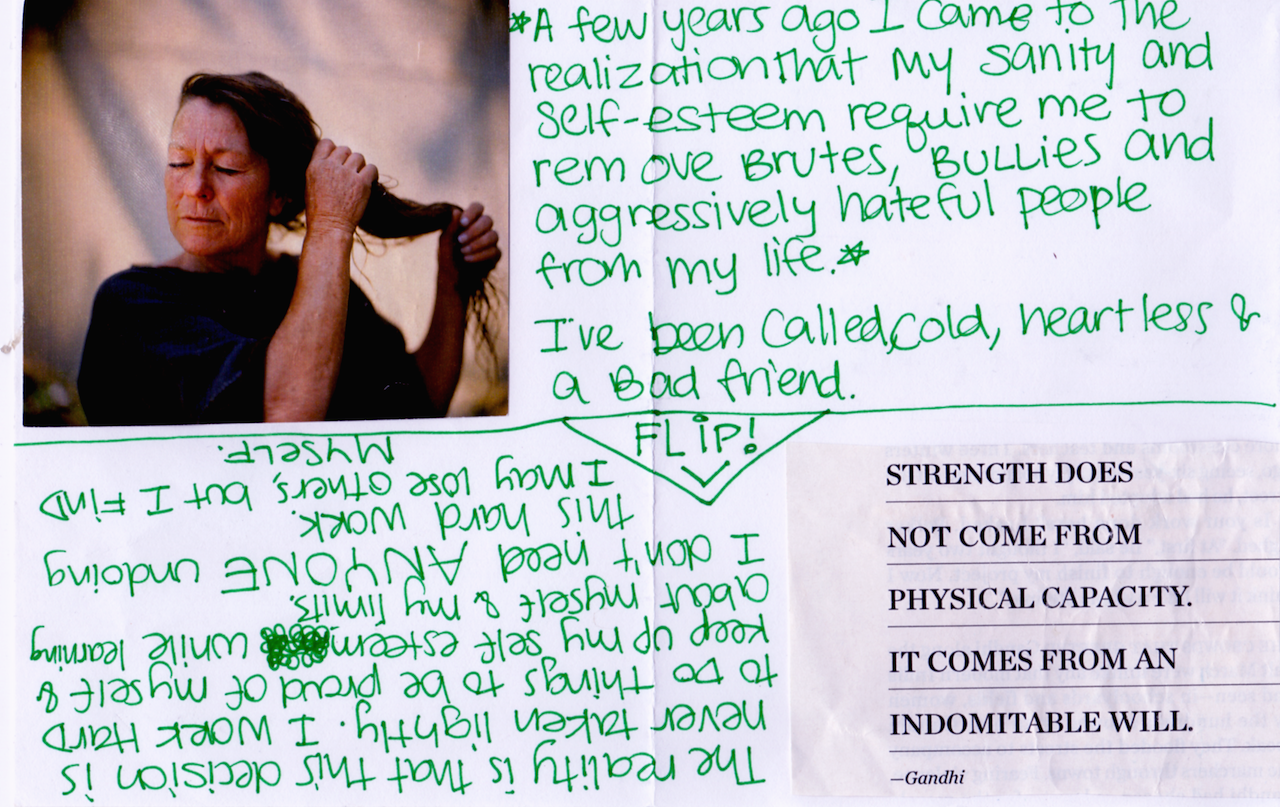 *A few years ago I came to the
realization that my sanity and
self-esteem require me to
remove BRUTES, BULLIES and
aggressively hateful people
from my life.*
I've been called, cold, heartless &
a Bad friend.
FLIP!
The reality is that this decision is
never taken lightly. I WORK HARD
to do things to be proud of myself &
keep up my self esteem while learning
about myself & my limits.
I don't need ANYONE undoing
this hard work.
I may lose others, but I FIND
MYSELF.
STRENGTH DOES
NOT COME FROM
PHYSICAL CAPACITY.
IT COMES FROM AN
INDOMITABLE WILL.
—Gandhi